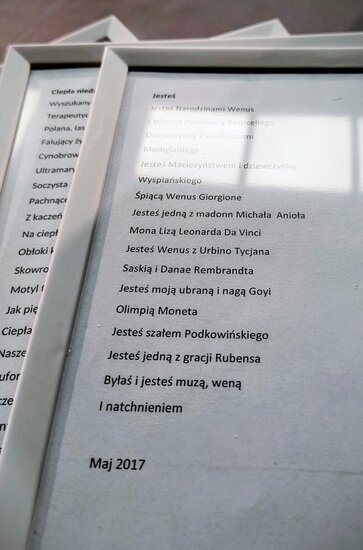 Ciepła niedz
Wyszukany
Terapeutyc
Polana, las
Falujący ży
Cynobrow
Ultramary
Soczysta
Pachnące
Z kaczeń
Na ciepł
Obłoki k
Skowro
Motyl t
Jak pię
Ciepła
Nasze
Jesteś
Jesteś Narodzinami Wenus
I Wiosną Primavera Botticellego
Dziewczynką z warkoczami
Modiglianiego
Jesteś Macieżyństwem i dziewczynką
Wyspiańskiego
Śpiącą Wenus Giorgione
Jesteś jedną z madonn Michała Anioła
Mona Lizą Leonarda Da Vinci
Jesteś Wenus z Urbino Tycjana
Saskią i Danae Rembrandta
Jesteś moją ubraną i nagą Goyi
Olimpią Moneta
Jesteś szałem Podkowińskiego
Jesteś jedną z gracji Rubensa
Byłaś i jesteś muzą, weną
I natchnieniem
Maj 2017